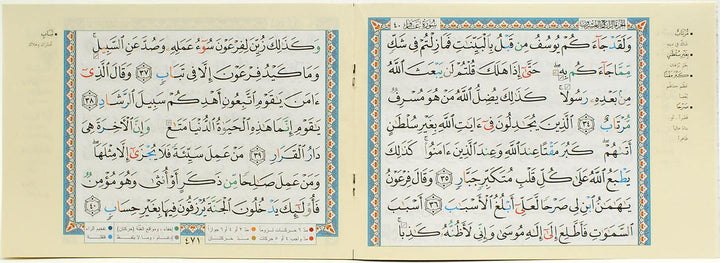 سورة غافر ٤٠
وَلَقَدْ جَآءَكُمْ يُوسُفُ مِن قَبْلُ بِٱلْبَيِّنَٰتِ فَمَا زِلْتُمْ فِى شَكٍّ
مِّمَّا جَآءَكُم بِهِۦ حَتَّىٰٓ إِذَا هَلَكَ قُلْتُمْ لَن يَبْعَثَ ٱللَّهُ
مِنۢ بَعْدِهِۦ رَسُولًا كَذَٰلِكَ يُضِلُّ ٱللَّهُ مَنْ هُوَ مُسْرِفٌ
مُّرْتَابٌ ٣٤ ٱلَّذِينَ يُجَٰدِلُونَ فِىٓ ءَايَٰتِ ٱللَّهِ بِغَيْرِ سُلْطَٰنٍ
أَتَىٰهُمْ كَبُرَ مَقْتًا عِندَ ٱللَّهِ وَعِندَ ٱلَّذِينَ ءَامَنُوا۟ كَذَٰلِكَ
يَطْبَعُ ٱللَّهُ عَلَىٰ كُلِّ قَلْبِ مُتَكَبِّرٍ جَبَّارٍ ٣٥ وَقَالَ فِرْعَوْنُ
يَٰهَٰمَٰنُ ٱبْنِ لِى صَرْحًا لَّعَلِّىٓ أَبْلُغُ ٱلْأَسْبَٰبَ ٣٦ أَسْبَٰبَ
ٱلسَّمَٰوَٰتِ فَأَطَّلِعَ إِلَىٰٓ إِلَٰهِ مُوسَىٰ وَإِنِّى لَأَظُنُّهُۥ كَٰذِبًا
وَكَذَٰلِكَ زُيِّنَ لِفِرْعَوْنَ سُوٓءُ عَمَلِهِۦ وَصُدَّ عَنِ ٱلسَّبِيلِ
وَمَا كَيْدُ فِرْعَوْنَ إِلَّا فِى تَبَابٍ ٣٧ وَقَالَ ٱلَّذِىٓ
ءَامَنَ يَٰقَوْمِ ٱتَّبِعُونِ أَهْدِكُمْ سَبِيلَ ٱلرَّشَادِ ٣٨
يَٰقَوْمِ إِنَّمَا هَٰذِهِ ٱلْحَيَوٰةُ ٱلدُّنْيَا مَتَٰعٌ وَإِنَّ ٱلْءَاخِرَةَ هِىَ
دَارُ ٱلْقَرَارِ ٣٩ مَنْ عَمِلَ سَيِّئَةً فَلَا يُجْزَىٰٓ إِلَّا مِثْلَهَا
وَمَنْ عَمِلَ صَٰلِحًا مِّن ذَكَرٍ أَوْ أُنثَىٰ وَهُوَ مُؤْمِنٌ
فَأُو۟لَٰٓئِكَ يَدْخُلُونَ ٱلْجَنَّةَ يُرْزَقُونَ فِيهَا بِغَيْرِ حِسَابٍ ٤٠
٤٧١